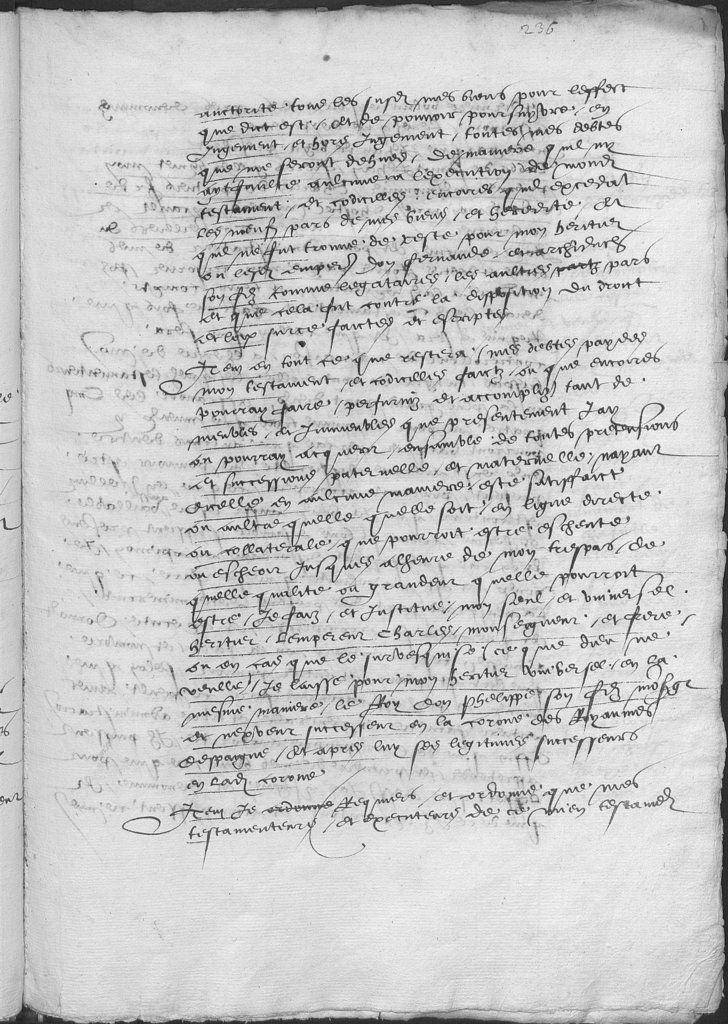 236
auctorité tous les susd mes biens pour leffect
que dict est, et de pouvoir poursuyvre, en
Jugement, et hors Jugement, toutes mes debtes
que me seront dehues, de maniere quil ny
ayt faulte aulcune a lexecution de mond
testament, et codicilles, encores quilz excedat
les neufz pars de mes biens, et heredité, et
quil ne fut trouve de reste pour mon heritier
ou lesd empereur don fernande, et archiducs
son filz comme legataires, les aultres partz pars
et que cela fut contre la disposition du droit
et loix surce faictes et escriptes
Item en tout ce que restera, mes debtes payees
mon testament, et codicilles faictz, ou que encoires
pourray faire, perfurniz et accompliz tant de
meubles, et Immeubles que presentement Jay
ou pourray acquerir, ensamble de toutes pretensions
et successions paternelle, et maternelle, nayant
dicelle en aulcune maniere este satisfaict
ou aultre quelle quelle soit, en ligne directe
ou collaterale que pourroit estre escheute
ou escheoir Jusques alheure de mon trespas, de
quelle qualite ou grandeur quelle pourroit
estre, Je faiz, et Institue, mon seul, et universel
heritier, Lempereur Charles, monseigneur, et frere,
ou en cas que le survesquisse (ce que dieu ne
veuille) Je laisse pour mon heritier universel, en la
mesme maniere, le Roy don phelippe son filz mons^gr
et nepveur successeur en la corone des Royaumes
despaigne, et apres luy ses legitimes successeurs
en lad corone
Item Je ordonne Requiers, et ordonne que mes
testamenteurs, et executeurs de ce mien testamet